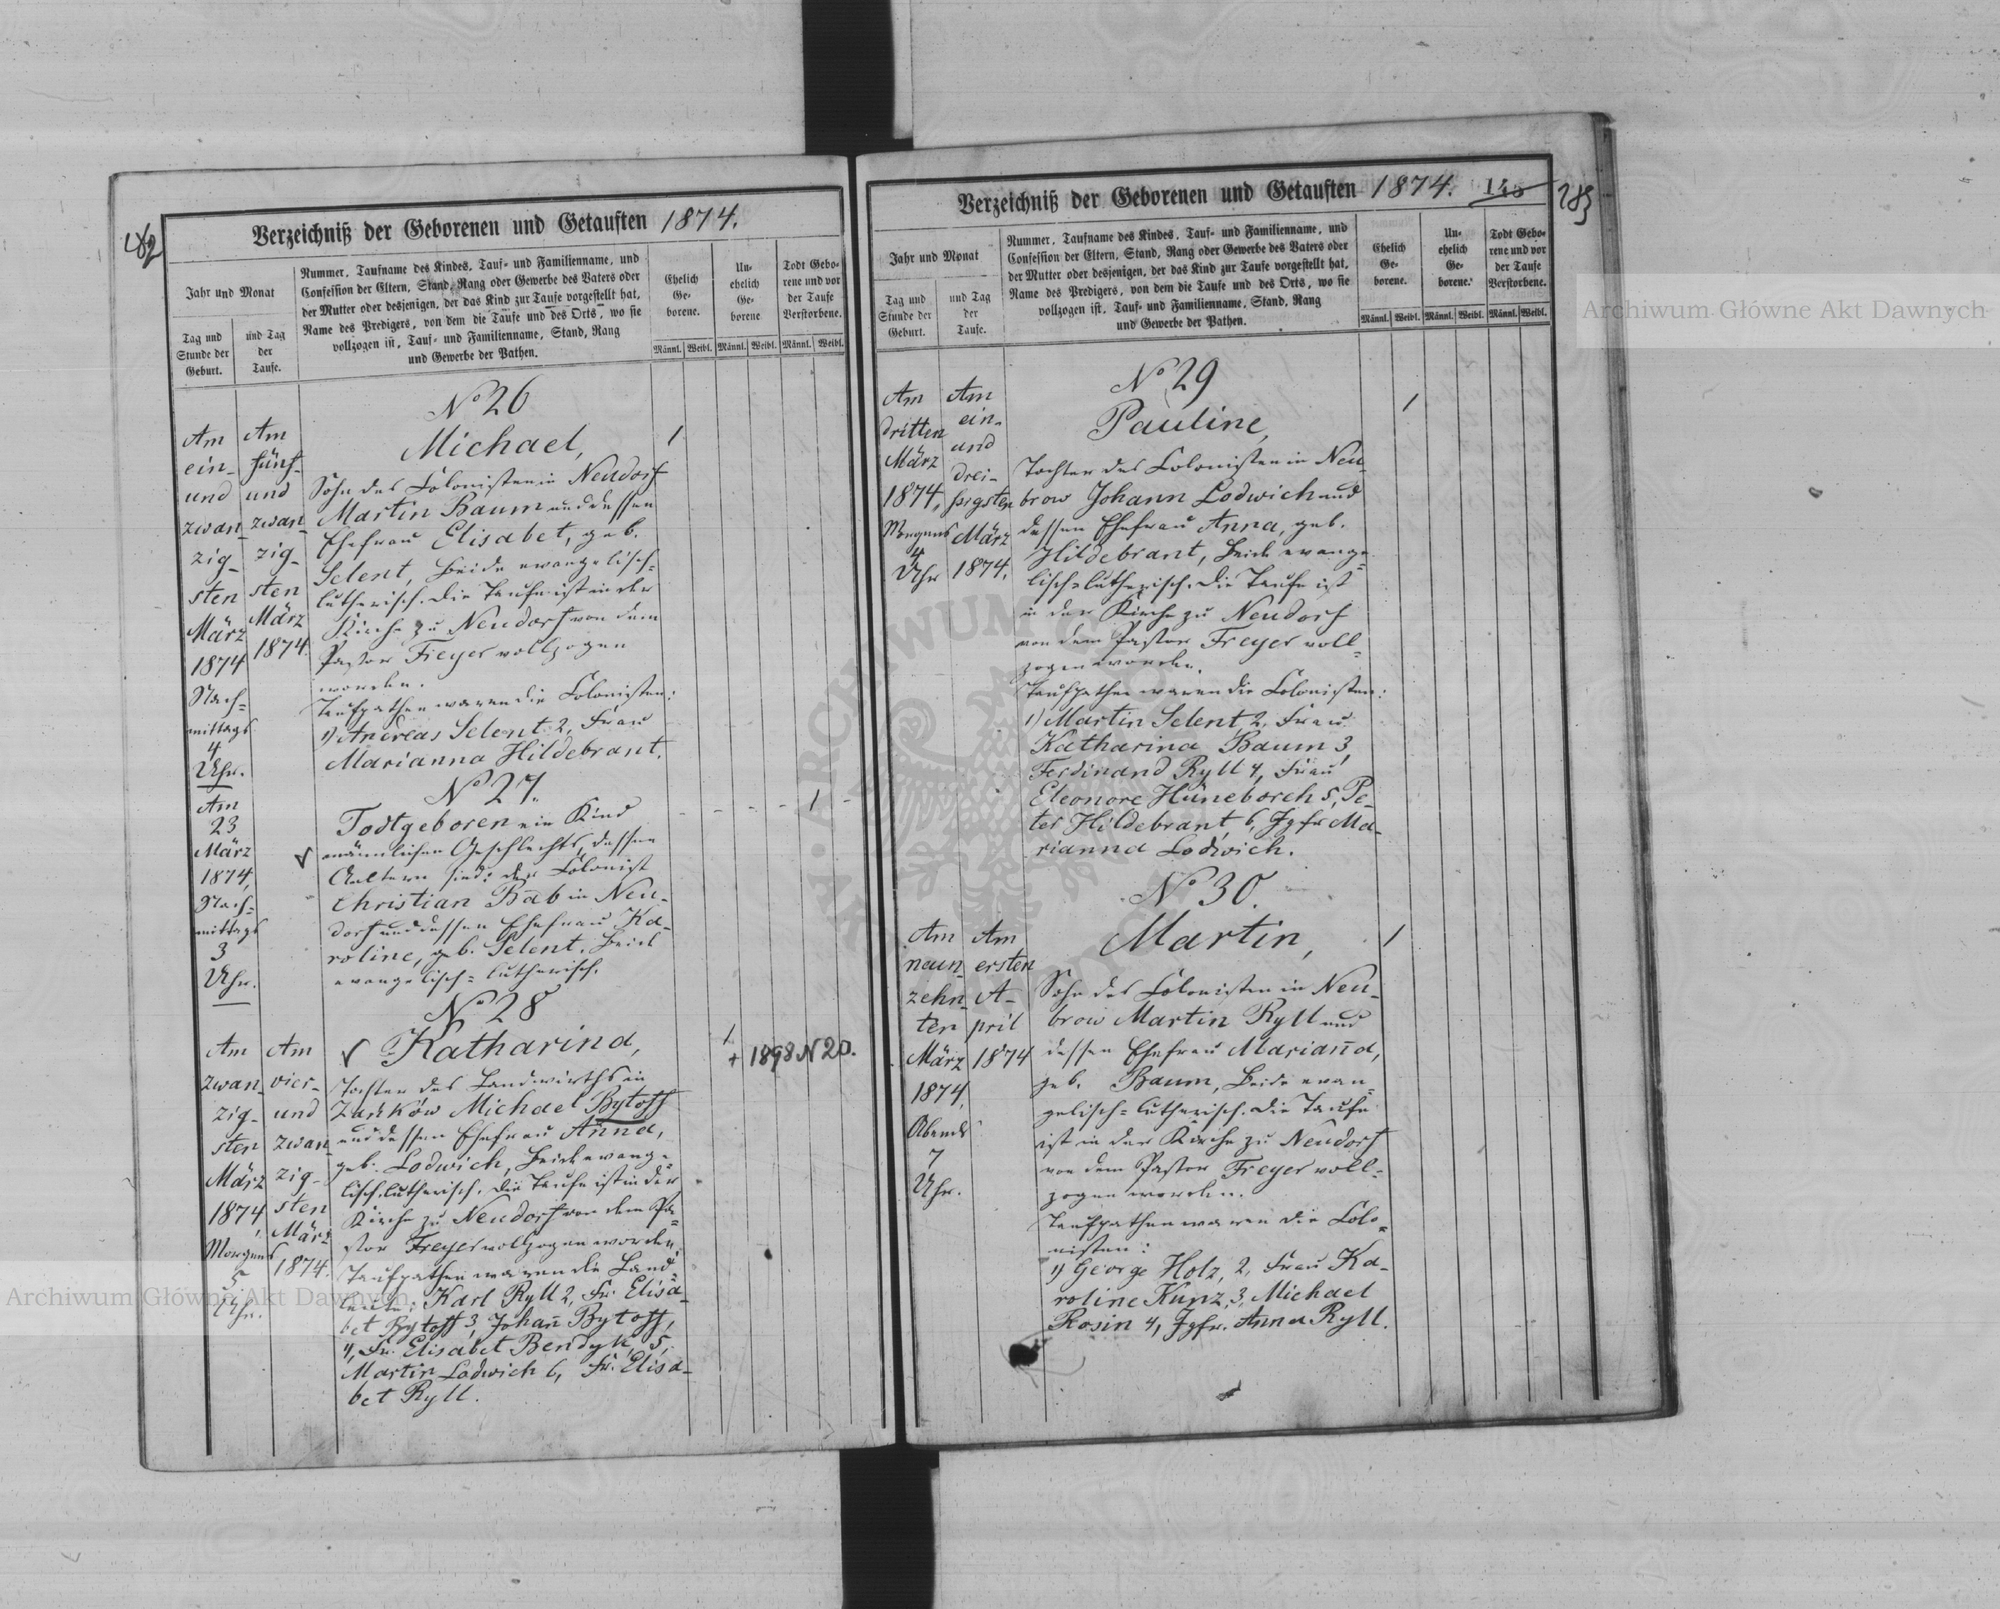 182
Verzeichniß der Geborenen und Getauften 1874.
Jahr und Monat
Tag und
Stunde der
Geburt.
und Tag
der
Taufe.
Nummer, Taufname des Kindes, Tauf- und Familienname, und
Confession der Eltern, Stand, Rang oder Gewerbe des Vaters oder
der Mutter oder desjenigen, der das Kind zur Taufe vorgestellt hat,
Name des Predigers, von dem die Taufe und des Orts, wo sie
vollzogen ist, Tauf- und Familienname, Stand, Rang
und Gewerbe der Pathen.
Ehelich
Ge-
borene.
Un-
ehelich
Ge-
borene
Todt Gebo-
rene und vor
der Taufe
Verstorbene.
Männl. Weibl. Männl. Weibl. Männl. Weibl.
Am
ein-
und
zwan-
zig-
sten
März
1874
Nach-
mittags
4
Uhr.
Am
fünf-
und
zwan-
zig-
sten
März
1874.
No 26
Michael,
Sohn des Colonisten in Neudorf
Martin Baum und dessen
Ehefrau Elisabet, geb.
Selent, Beide evangelisch-
lutherisch. Die Taufe ist in der
Kirche zu Neudorf von dem
Pastor Freyer vollzogen
worden.
Taufpathen waren die Colonisten:
1) Andreas Selent 2, Frau
Marianna Hildebrant.
Am
23
März
1874,
Nach-
mittags
3
Uhr.
No 27.
Todtgeboren ein Kind
männlichen Geschlechts, dessen
Aeltern sind: der Colonist
Christian Bab in Neu-
dorf und dessen Ehefrau Ka-
roline, geb. Selent. Beide
evangelisch-lutherisch.
Am
zwan-
zig-
sten
März
1874,
Morgens
5
Uhr.
Am
vier-
und
zwan-
zig-
sten
März
1874.
No 28
Katharina,
+ 1898 N 20.
Tochter des Landwirths in
Zańków Michael Bytoff
und dessen Ehefrau Anna,
geb. Lodwich, Beide evange-
lisch-lutherisch. Die Taufe ist in der
Kirche zu Neudorf von dem Pa-
stor Freyer vollzogen worden.
Taufpathen waren die Land-
leute: Karl Ryll 2, Fr. Elisa-
bet Bytoff 3, Johann Bytoff,
4, Fr. Elisabet Bendyk, 5,
Martin Lodwich 6, Fr. Elisa-
bet Ryll.
Verzeichniß der Geborenen und Getauften 1874.
183
Jahr und Monat
Tag und
Stunde der
Geburt.
und Tag
der
Taufe.
Nummer, Taufname des Kindes, Tauf- und Familienname, und
Confession der Eltern, Stand, Rang oder Gewerbe des Vaters oder
der Mutter oder desjenigen, der das Kind zur Taufe vorgestellt hat,
Name des Predigers, von dem die Taufe und des Orts, wo sie
vollzogen ist, Tauf- und Familienname, Stand, Rang
und Gewerbe der Pathen.
Ehelich
Ge-
borene.
Un-
ehelich
Ge-
borene.
Todt Gebo-
rene und vor
der Taufe
Verstorbene.
Männl. Weibl. Männl. Weibl. Männl. Weibl.
Am
dritten
März
1874,
Morgens
4
Uhr
Am
ein-
und
drei-
ßigsten
März
1874.
No 29
Pauline,
Tochter des Colonisten in Neu-
brow Johann Lodwich und
dessen Ehefrau Anna, geb.
Hildebrant, Beide evange-
lisch-lutherisch. Die Taufe ist
in der Kirche zu Neudorf
von dem Pastor Freyer voll-
zogen worden.
Taufpathen waren die Colonisten:
1) Martin Selent 2, Frau
Katharina Baum 3,
Ferdinand Ryll 4, Frau
Eleonore Hüneborch 5, Pe-
ter Hildebrant 6, Jgfr Ma-
rianna Lodwich.
Am
neun-
zehn-
ten
März
1874,
Abends
7
Uhr.
Am
ersten
A-
pril
1874
No 30.
Martin,
Sohn des Colonisten in Neu-
brow Martin Ryll und
dessen Ehefrau Marianna,
geb. Baum, Beide evan-
gelisch-lutherisch. Die Taufe
ist in der Kirche zu Neudorf
von dem Pastor Freyer voll-
zogen worden.
Taufpathen waren die Colo-
nisten:
1) George Holz, 2, Frau Ka-
roline Kunz, 3, Michael
Rosin 4, Jgfr. Anna Ryll.
Archiwum Główne Akt Dawnych
Archiwum Główne Akt Dawnych